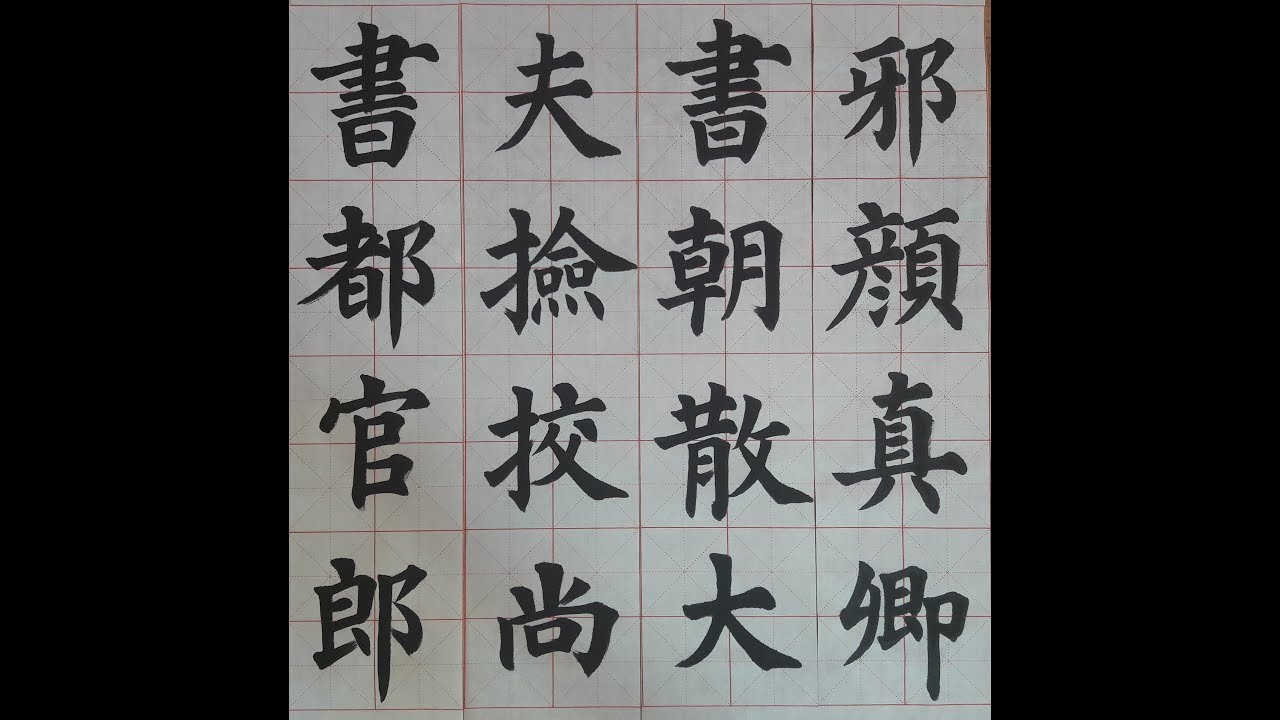 邪顔真卿
書朝散大
夫撿挍尚
書都官郎